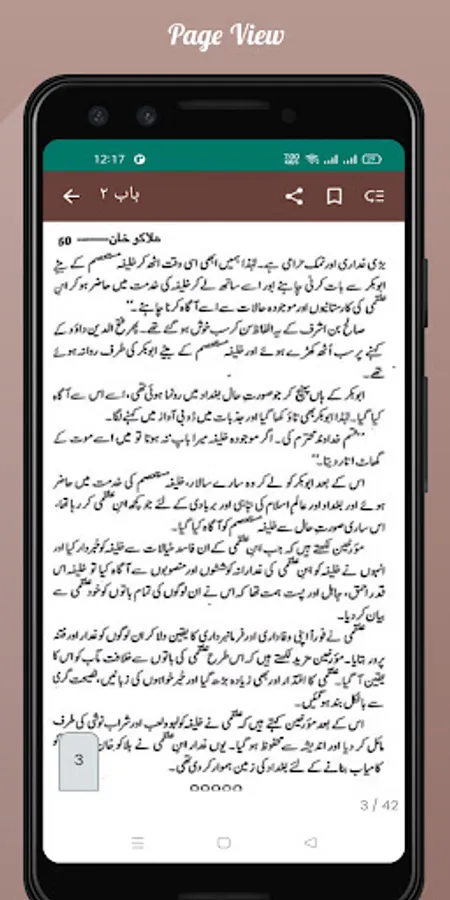 Page View
12:17
باب ۲
ہلاکو خان —— 60
بڑی غداری اور نمک حرامی ہے۔ لہٰذا ہمیں ابھی اسی وقت اٹھ کر خلیفہ مستعصم کے بیٹے
ابوبکر سے بات کرنی چاہئے اور اسے ساتھ لے کر خلیفہ کی خدمت میں حاضر ہو کر ابن
علقمی کی کارستانیوں اور موجودہ حالات سے اسے آگاہ کرنا چاہئے۔‘‘
صالح بن اشرف کے یہ الفاظ سن کر سب خوش ہو گئے تھے۔ پھر فتح الدین داؤد کے
کہنے پر سب اُٹھ کھڑے ہوئے اور خلیفہ مستعصم کے بیٹے ابوبکر کی طرف روانہ ہوئے
تھے۔
ابوبکر کے ہاں پہنچ کر جو صورتِ حال بغداد میں رونما ہوئی تھی، اُسے اس سے آگاہ
کیا گیا۔ لہٰذا ابوبکر بھی تاؤ کھا گیا اور جذبات میں ڈوبی آواز میں کہنے لگا۔
’’قسم خداوند محترم کی۔ اگر موجودہ خلیفہ میرا باپ نہ ہوتا تو میں اسے موت کے
گھاٹ اتار دیتا۔‘‘
اس کے بعد ابوبکر کو لے کر وہ سارے سالار، خلیفہ مستعصم کی خدمت میں حاضر
ہوئے اور بغداد اور عالم اسلام کی تباہی اور بربادی کے لئے جو کچھ ابن علقمی کر رہا تھا،
اس ساری صورتِ حال سے خلیفہ مستعصم کو آگاہ کیا گیا۔
مؤرخین لکھتے ہیں کہ جب ابن علقمی کے ان فاسد خیالات سے خلیفہ کو خبردار کیا اور
انہوں نے خلیفہ کو ابن علقمی کی غدارانہ کوششوں اور منصوبوں سے آگاہ کیا تو خلیفہ اس
قدر احمق، جاہل اور پست ہمت تھا کہ اس نے ان لوگوں کی تمام باتوں کو خود علقمی سے
بیان کر دیا۔
علقمی نے فوراً اپنی وفاداری اور فرمانبرداری کا یقین دلا کر ان لوگوں کو غدار اور فتنہ
پرور بتایا۔ مؤرخین مزید لکھتے ہیں کہ اس طرح علقمی کی باتوں سے خلافت مآب کو اس کا
یقین آ گیا۔ علقمی کا اقتدار اور بھی زیادہ بڑھ گیا اور خیر خواہوں کی زبانیں، نصیحت گری
سے بالکل بند ہو گئیں۔
اس کے بعد مؤرخین کہتے ہیں کہ علقمی نے خلیفہ کو لہو و لعب اور شراب نوشی کی طرف
مائل کر دیا اور اندیشہ سے محفوظ ہو گیا۔ یوں غدار ابن علقمی نے ہلاکو خان کو
کامیاب بنانے کے لئے بغداد کی زمین ہموار کر دی تھی۔
3
3 / 42